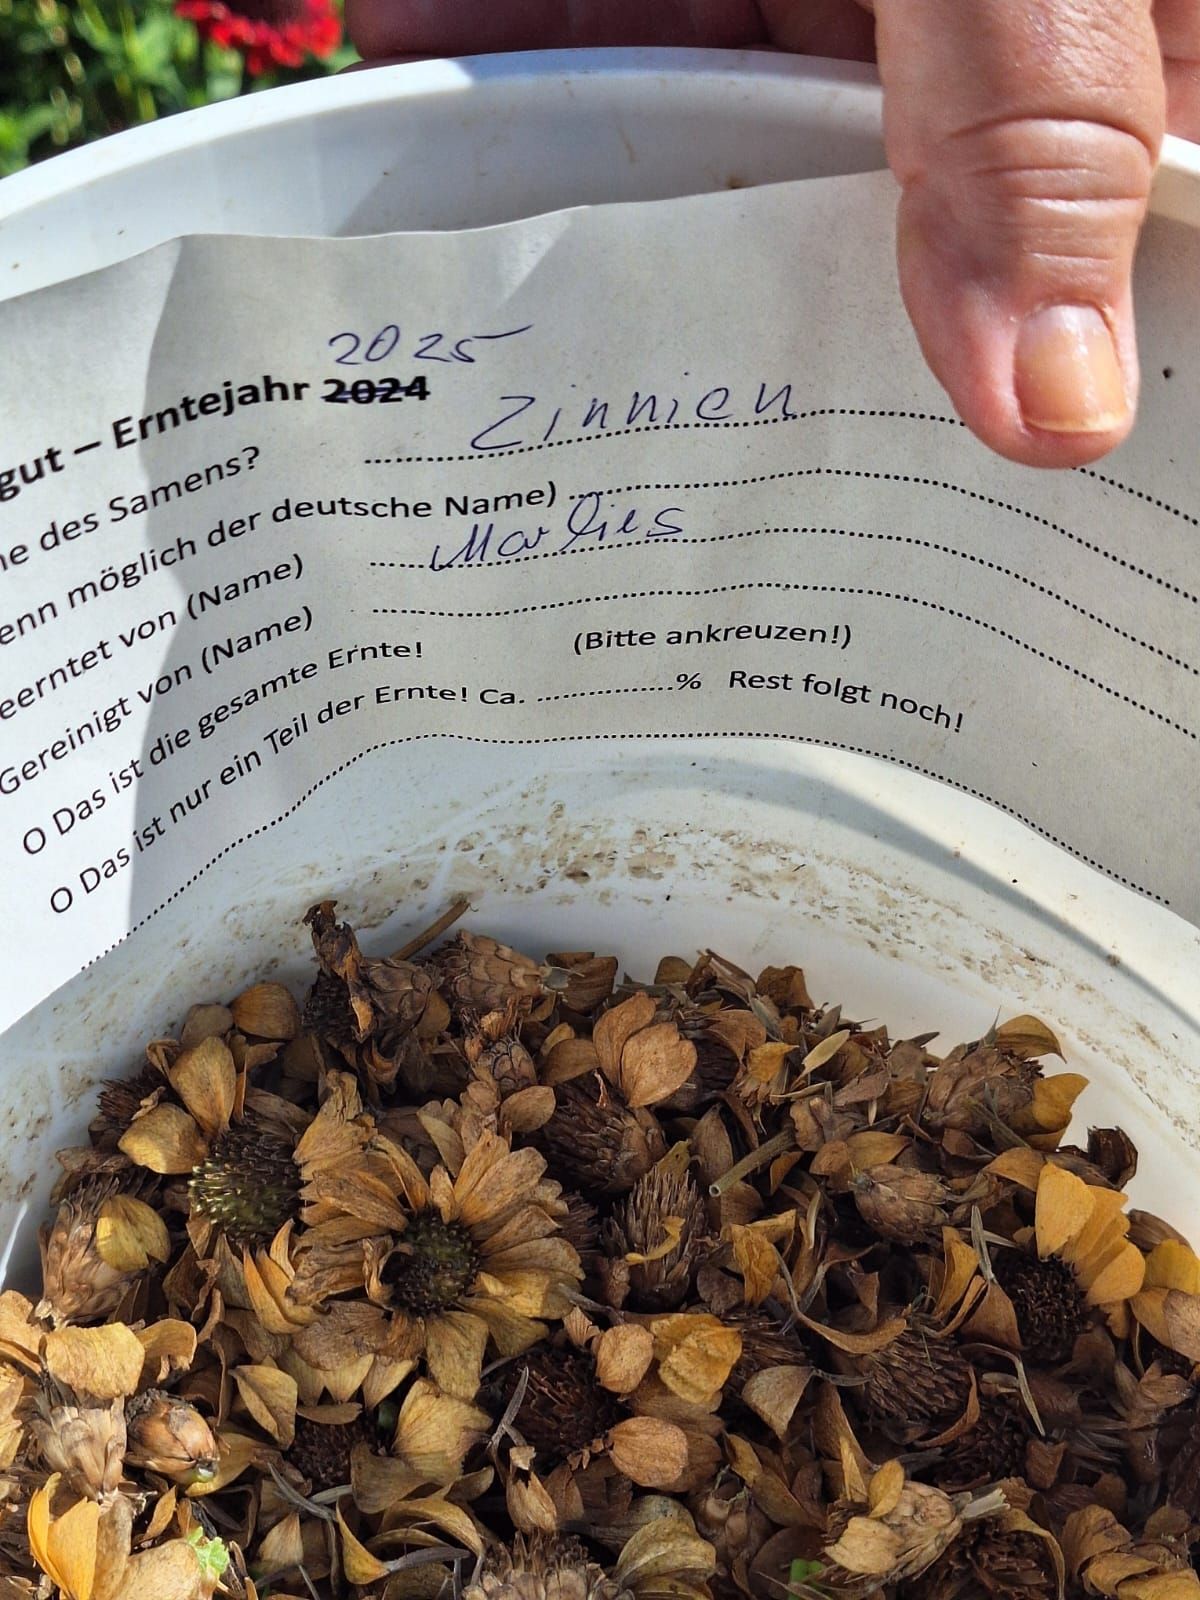 2025
gut – Erntejahr 2024
ne des Samens? Zinnien
enn möglich der deutsche Name)
eerntet von (Name) Marlies
Gereinigt von (Name)
O Das ist die gesamte Ernte! (Bitte ankreuzen!)
O Das ist nur ein Teil der Ernte! Ca. ..............% Rest folgt noch!